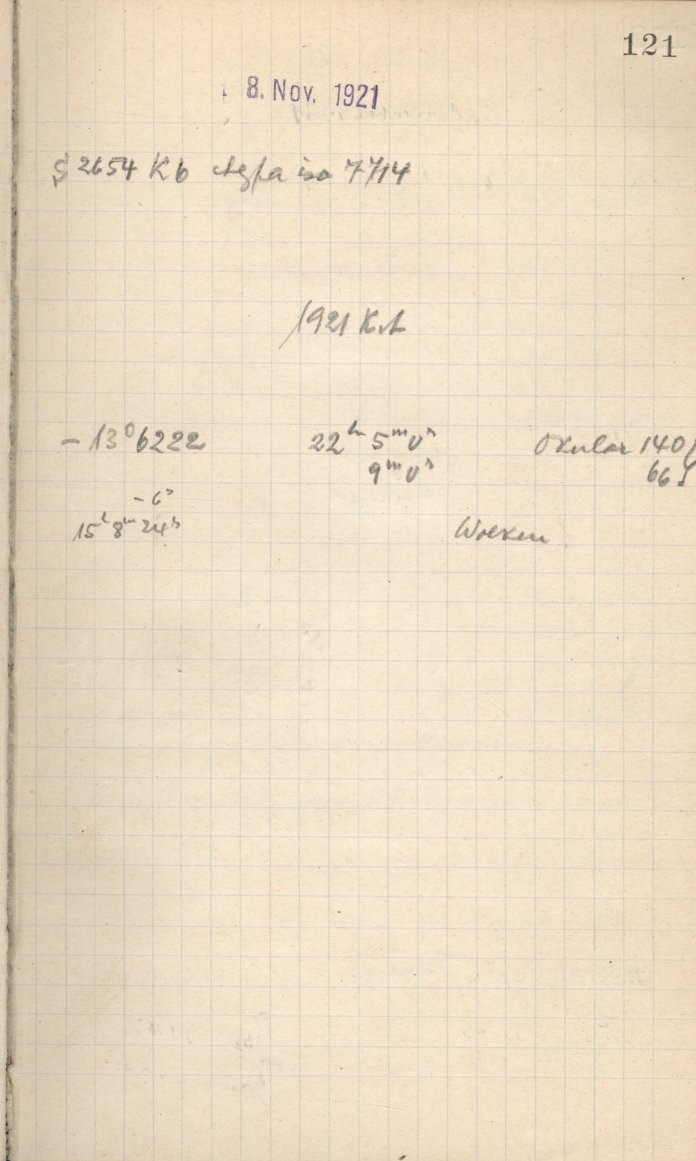 121
8. Nov. 1921
S 2654 Kb Agfa iso 7714
1921 K.A
- 13° 6222 22ʰ 5ᵐ 0ˢ Okular 140
9ᵐ 0ˢ 66
- 6ˢ
15ʰ 8ᵐ 24ˢ Wolken